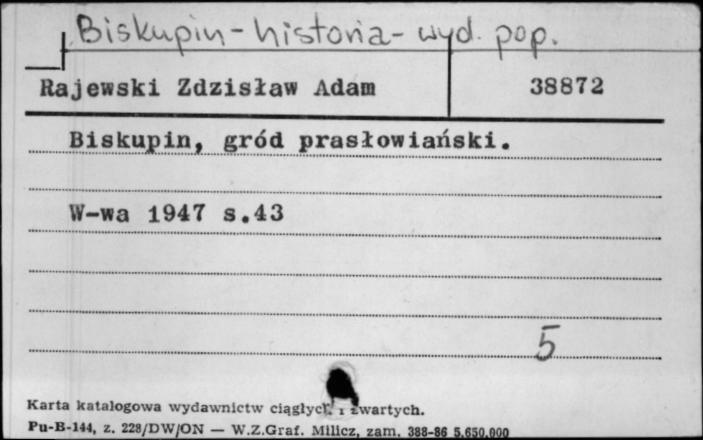 Biskupin - historia - wyd. pop.
Rajewski Zdzisław Adam 38872
Biskupin, gród prasłowiański.
W-wa 1947 s.43
5
Karta katalogowa wydawnictw ciągłych i zwartych.
Pu-B-144, z. 228/DW/ON — W.Z.Graf. Milicz, zam. 388-86 5.650.000